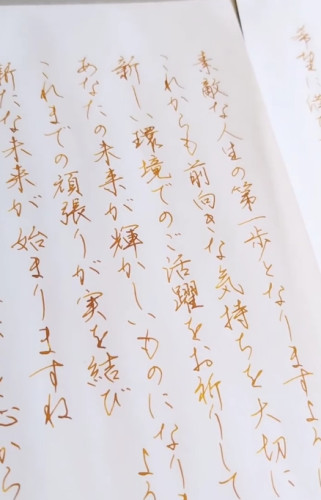 希望に
素敵な人生の第一歩となりますよう
これからも前向きな気持ちを大切に
新しい環境でのご活躍をお祈りして
あなたの未来が輝かしいものになりま
よう
これまでの頑張りが実を結び
新たな未来が始まりますね
心から